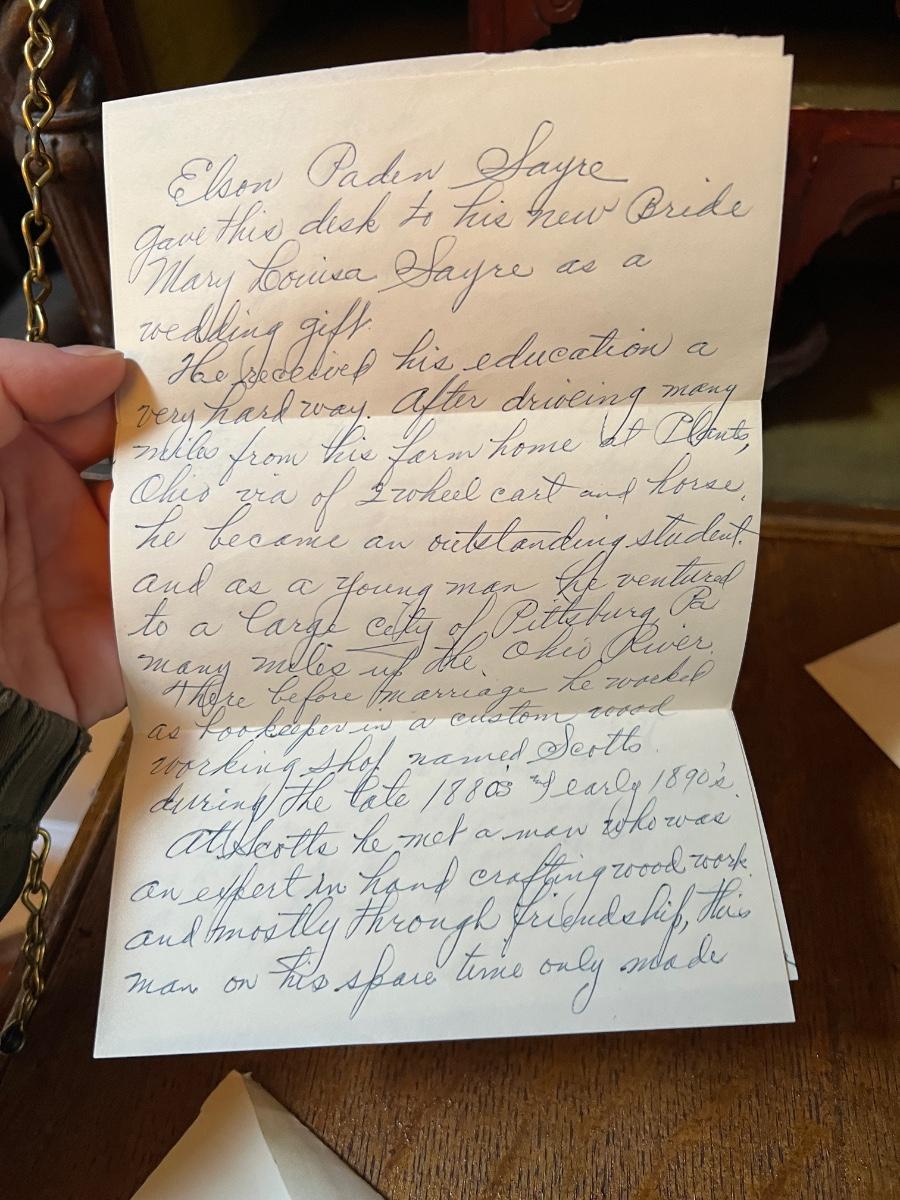 Elson Paden Sayre
gave this desk to his new Bride
Mary Louisa Sayre as a
wedding gift.
He received his education a
very hard way. After driveing many
miles from his farm home at Plants,
Ohio via of 2 wheel cart and horse,
he became an outstanding student.
and as a young man he ventured
to a large city of Pittsburg, Pa
many miles up the Ohio River.
There before marriage he worked
as bookeeper in a custom wood
working shop named Scotts
during the late 1880's and early 1890's.
At Scotts he met a man who was
an expert in hand crafting wood work
and mostly through friendship, this
man on his spare time only made